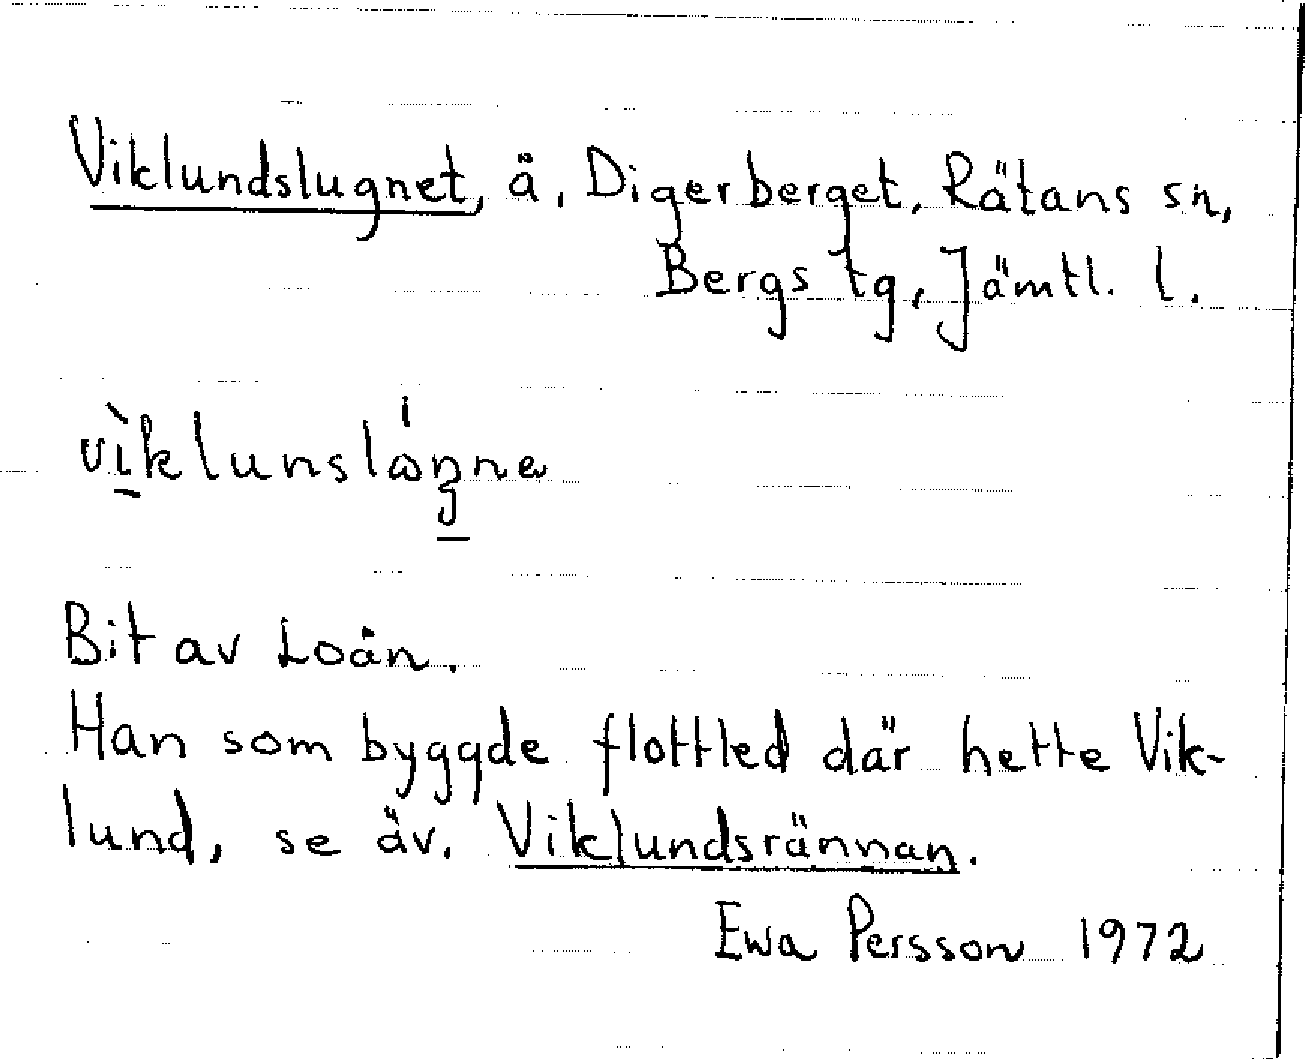 Viklundslugnet, å, Digerberget, Rätans sn,
Bergs tg, Jämtl. l.
Bit av Loån.
Han som byggde flottled där hette Vik-
lund, se äv. Viklundsrännan.
Ewa Persson 1972